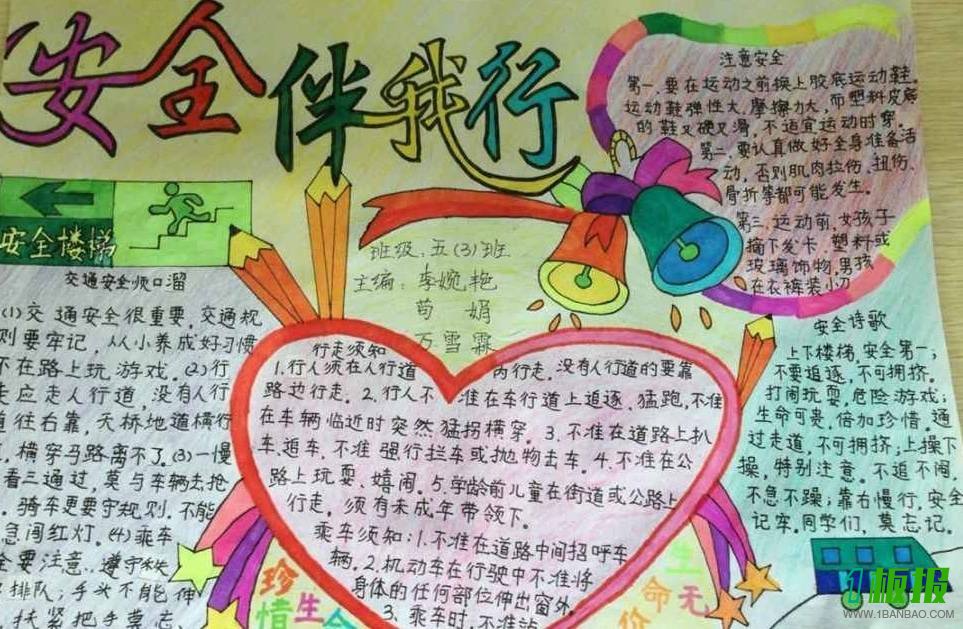 安全伴我行
安全楼梯
班级：五(3)班
主编：李婉艳
荀 娟
万雪霖
注意安全
第一，要在运动之前换上胶底运动鞋。
运动鞋弹性大，摩擦力大，而塑料皮底
的鞋又硬又滑，不适宜运动时穿。
第二，要认真做好全身准备活
动，否则肌肉拉伤、扭伤、
骨折等都可能发生。
第三，运动前，女孩子
摘下发卡，塑料或
玻璃饰物，男孩
在衣裤装小刀
交通安全顺口溜
(1)交通安全很重要，交通规
则要牢记，从小养成好习惯
不在路上玩游戏。(2)行
走应走人行道，没有人行
道往右靠，天桥地道横行
，横穿马路离不了。(3)一慢
看三通过，莫与车辆去抢
骑车更要守规则，不能
急闯红灯。(4)乘车
全要注意，遵守秩
排队；手头不能伸
扶紧把手莫忘
行走须知
1.行人须在人行道内行走，没有人行道的要靠
路边行走。2.行人不准在车行道上追逐、猛跑，不准
在车辆临近时突然猛拐横穿。3.不准在道路上扒
车、追车，不准强行拦车或抛物击车。4.不准在公
路上玩耍、嬉闹。5.学龄前儿童在街道或公路上
行走，须有未成年带领下。
乘车须知：1.不准在道路中间招呼车
辆。2.机动车在行驶中不准将
身体的任何部位伸出窗外，
3.乘车时，不准站
安全诗歌
上下楼梯，安全第一；
不要追逐，不可拥挤。
打闹玩耍，危险游戏；
生命可贵，倍加珍惜。通
过走道，不可拥挤，上操下
操，特别注意。不追不闹，
不急不躁；靠右慢行，安全
记牢。同学们，莫忘记。
珍惜生命
生命无价
板报
WWW.1BANBAO.COM